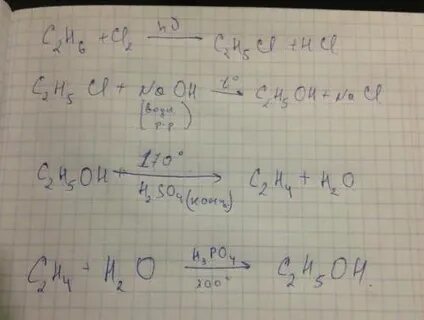 C₂H₆ + Cl₂ →(hν) C₂H₅Cl + HCl
C₂H₅Cl + NaOH (водн. р-р) →(t°) C₂H₅OH + NaCl
C₂H₅OH + →(170° H₂SO₄(конц)) C₂H₄ + H₂O
C₂H₄ + H₂O →(H₃PO₄ 300°) C₂H₅OH.